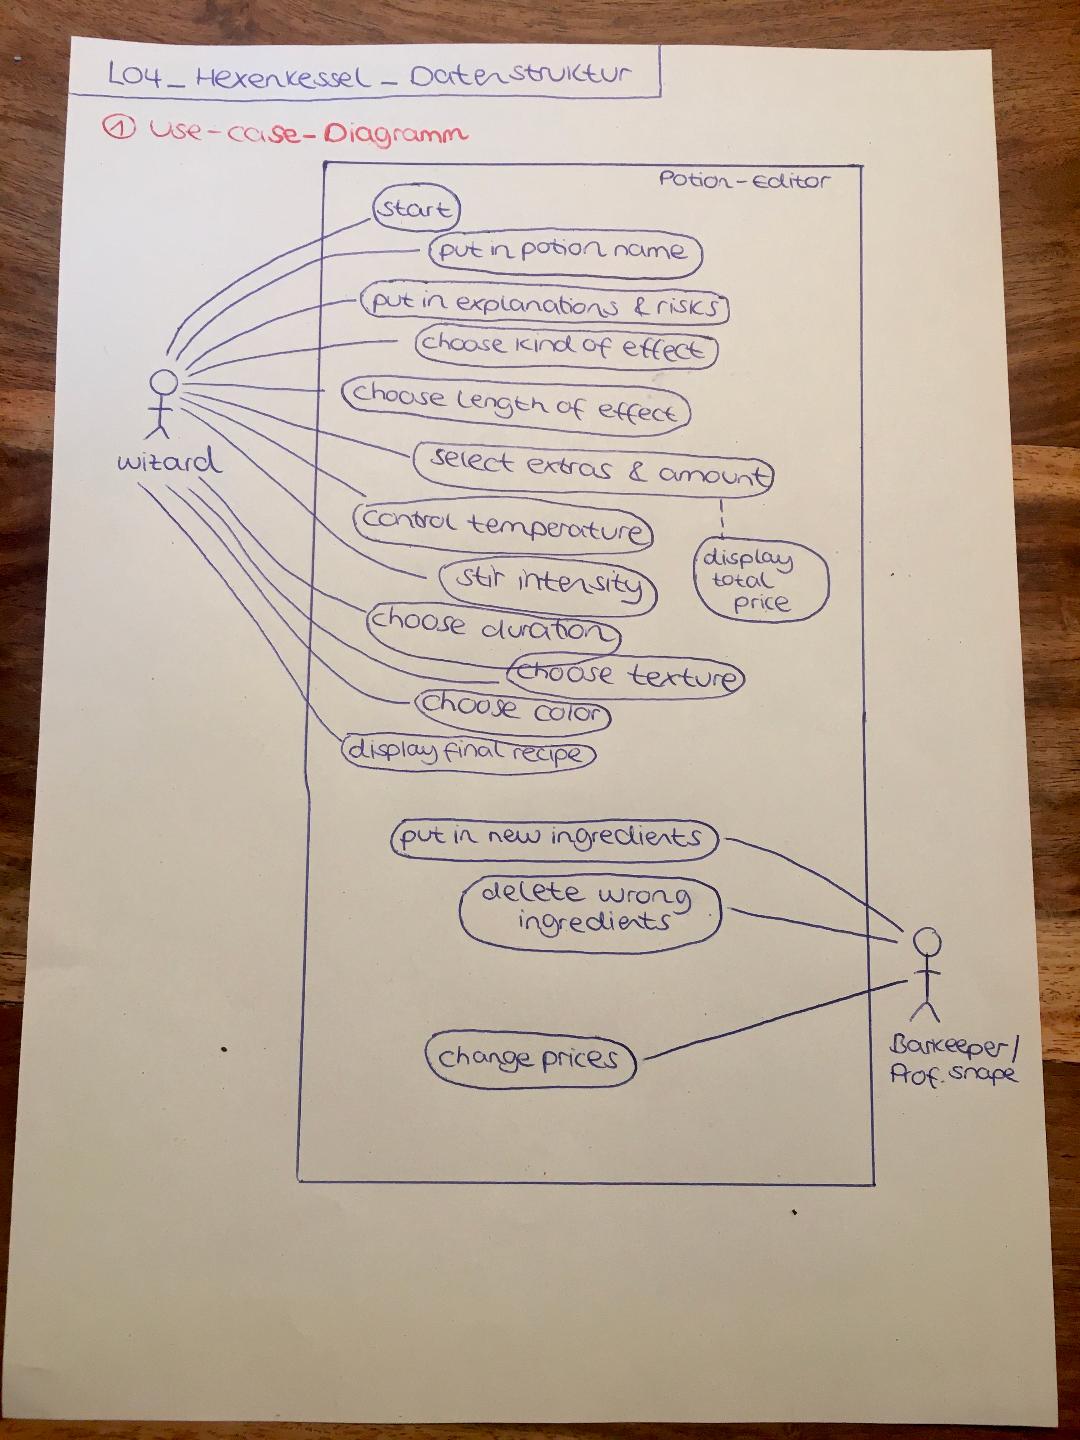 L04_Hexenkessel_Datenstruktur
① Use-case-Diagramm
Potion-Editor
start
put in potion name
put in explanations & risks
choose kind of effect
choose length of effect
select extras & amount
wizard
control temperature
display
total
price
stir intensity
choose duration
choose texture
choose color
display final recipe
put in new ingredients
delete wrong
ingredients
change prices
Barkeeper/
Prof. Snape